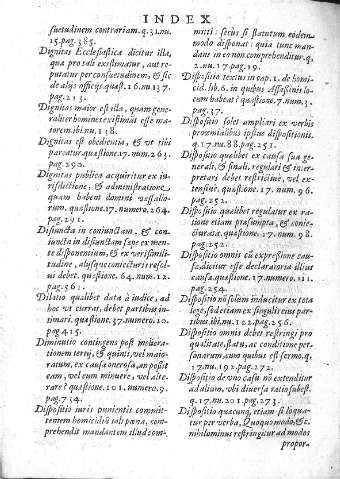 INDEX
suetudinem contrariam. q.31.nu.
15.pag.385.
Dignitas Ecclesiastica dicitur illa,
quæ pro tali existimatur, aut re-
putatur per consuetudinem, & sic
de alijs officijs. quæst.16.nu.137.
pag.213.
Dignitas maior est illa, quam gene-
raliter homines existimãt esse ma-
iorem. ibi.nu.138.
Dignitas est obedientia, & ut tibi
pareatur. quæstione.17.num.263.
pag.290.
Dignitas publica acquiritur ex iu-
risdictione, & administratione,
quam habent domini vassallo-
rum. quæstione.17.numero.264.
pag.291.
Disiuncta in coniunctam, & con-
iuncta in disiunctam sæpe ex men-
te disponentium, & ex verisimili-
tudine, absque coniecturis resol-
ui debet. quæstione.64.num.12.
pag.561.
Dilatio qualibet data à iudice, ad
hoc vt currat, debet partibus in-
timari. quæstione.37.numero.10.
pag.415.
Diminutio contingens post mensura-
tionem tertij, & quinti, vel maio-
ratum, ex causa onerosa, an possit
eam, vel eum minuere, vel alte-
rare? quæstione.101.numero.9.
pag.734.
Dispositio iuris punientis commit-
tentem homicidiũ tali pœna, com-
prehendit mandantem illud com-
mitti: secus si statutum eodem-
modo disponat: quia tunc man-
dans in eo non comprehenditur. q.
2.nu.17.pag.19.
Dispositio textus in cap.1. de homi-
cid. lib.6. in quibus Assassinis lo-
cum habeat? quæstione.7.num.3.
pag.37.
Dispositio solet ampliari ex verbis
proœmialibus ipsius dispositionis.
q.17.nu.88.pag.251.
Dispositio qualibet ex causa sua ge-
nerali, & finali, regulari & inter-
pretari debet restrictiuè, vel ex-
tensiuè. quæstione.17.num.96.
pag.252.
Dispositio qualibet regulatur ex ra-
tione etiam præsumpta, & coniec-
turata. quæstione.17.num.98.
pag.252.
Dispositio omnis cũ expresione cau-
sæ, dicitur esse declaratoria illius
causæ. quæstione.17.numero.111.
pag.254.
Dispositio nõ solum inducitur ex tota
lege, sed etiam ex singulis eius par-
tibus. ibi.nu.122.pag.256.
Dispositio omnis debet restringi pro
qualitate, statu, ac conditione per-
sonarum, cum quibus est sermo. q.
17.nu.192.pag.272.
Dispositio de vno casu nõ extenditur
ad alium, vbi diuersa ratio subest.
q.17.nu.201.pag.273.
Dispositio quæcunq; etiam si loqua-
tur per verba, Quoquo modo, & c.
nihilominus restringitur ad modos
propor-